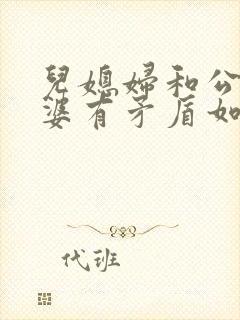 兒媳婦和公
婆有矛盾如
代班